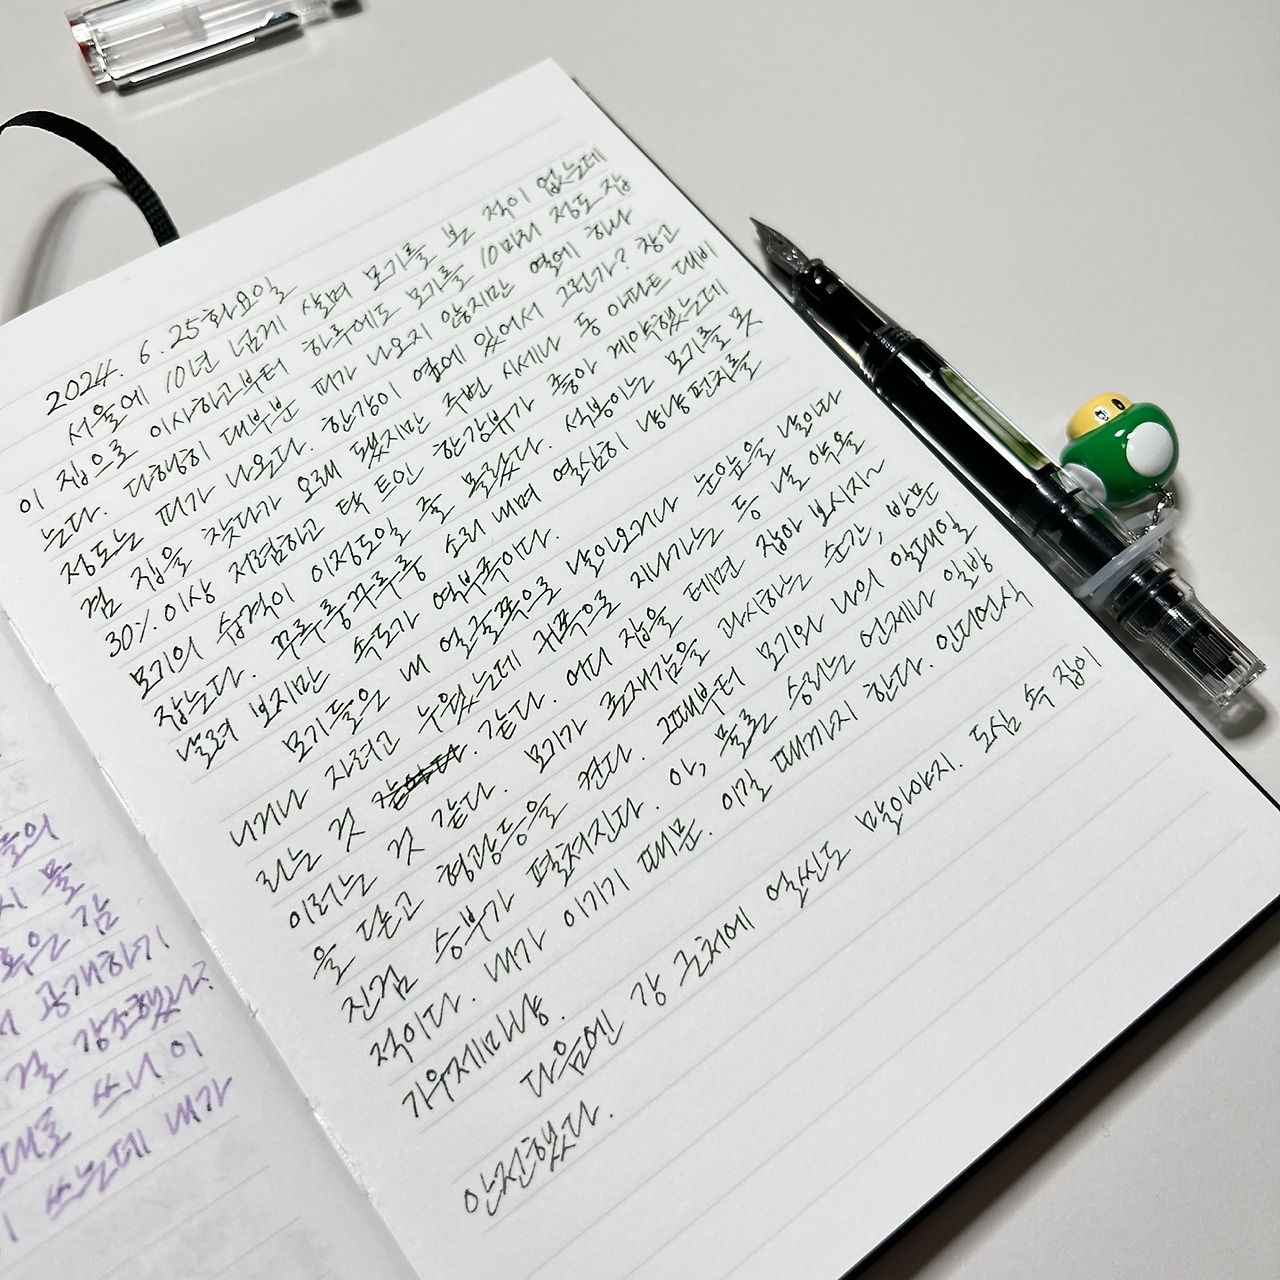 2024. 6. 25 화요일
서울에 10년 넘게 살며 모기를 본 적이 없는데
이 집으로 이사하고부터 하루에도 모기를 10마리 정도 잡
는다. 다행히 대부분 피가 나오지 않지만 열에 하나
정도는 피가 나온다. 한강이 옆에 있어서 그런가? 창고
겸 집을 찾다가 오래 됐지만 주변 시세나 동 아파트 대비
30% 이상 저렴하고 탁 트인 한강뷰가 좋아 계약했는데
모기의 습격이 이정도일 줄 몰랐다. 석봉이는 모기를 못
잡는다. 꾸루룽꾸루룽 소리 내며 열심히 냥냥펀치를
날려 보지만 속도가 역부족이다.
모기들은 내 얼굴쪽으로 날아오거나 눈앞을 날아다
니거나 자려고 누웠는데 귀쪽으로 지나가는 등 날 약올
리는 것 같다. 어디 잡을 테면 잡아 보시지~
이러는 것 같다. 모기가 존재감을 과시하는 순간, 방문
을 닫고 형광등을 켠다. 그때부터 모기와 나의 일대일
진검 승부가 펼쳐진다. 아, 물론 승리는 언제나 일방
적이다. 내가 이기기 때문. 이길 때까지 한다. 인디언식
기우제마냥.
다음엔 강 근처에 얼씬도 말아야지. 도심 속 집이
안전했다.
들의
시 물
혹은 감
공개하기
걸 강조했나?
대로 쓰니 이
쓰는데 내가